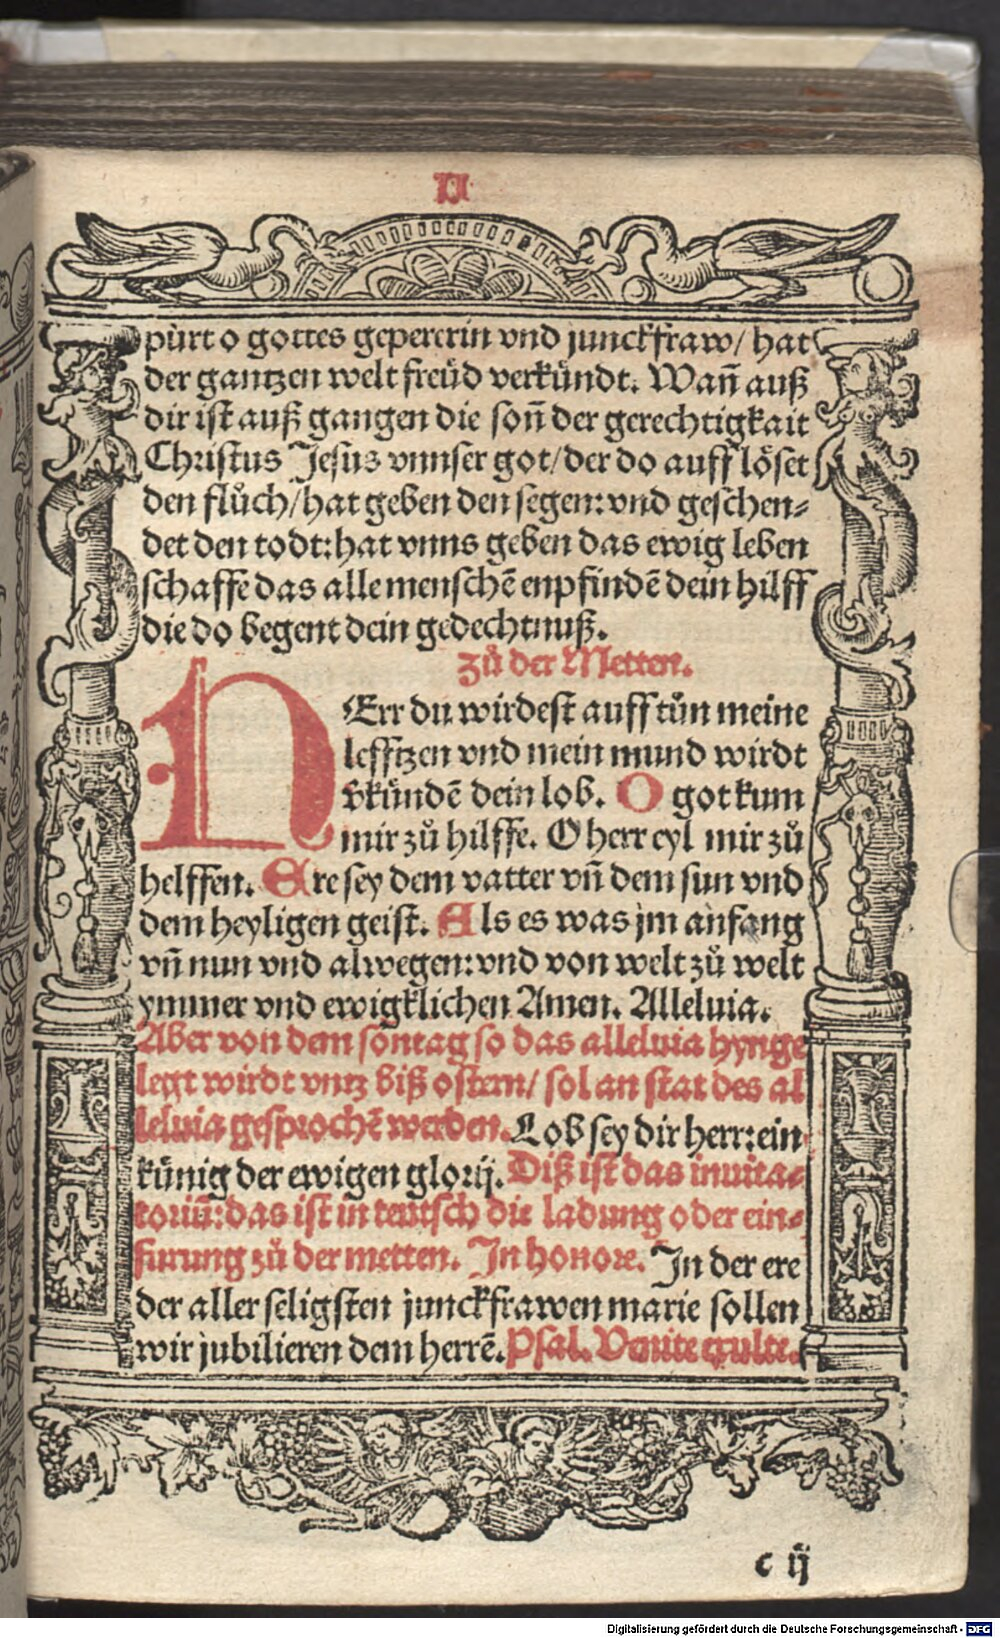 II
pürt o gottes gepererin vnd junckfraw/ hat
der gantzen welt freüd verkündt. Wañ auß
dir ist auß gangen die soñ der gerechtigkait
Christus Jesus vnnser got/ der do auff löset
den flůch/ hat geben den segen: vnd geschen-
det den todt: hat vnns geben das ewig leben
schaffe das alle menschē enpfindē dein hilff
die do begent dein gedechtnuß.
Zů der Metten.
HErr du wirdest auff tůn meine
lefftzen vnd mein mund wirdt
vkündē dein lob. O got kum
mir zů hilffe. O herr eyl mir zů
helffen. Ere sey dem vatter vñ dem sun vnd
dem heyligen geist. Als es was jm anfang
vñ nun vnd alwegen: vnd von welt zů welt
ymmer vnd ewigklichen Amen. Alleluia.
Aber von dem sontag so das alleluia hynge
legt wirdt vntz biß ostern/ sol an stat des al
leluia gesprochē werden. Lob sey dir herr: ein
künig der ewigen glorij. Diß ist das inuita-
toriū: das ist in teutsch die ladung oder ein-
furung zů der metten. In honore. In der ere
der aller seligsten junckfrawen marie sollen
wir jubilieren dem herrē. Psal. Venite exulte.
c ij
Digitalisierung gefördert durch die Deutsche Forschungsgemeinschaft - DFG